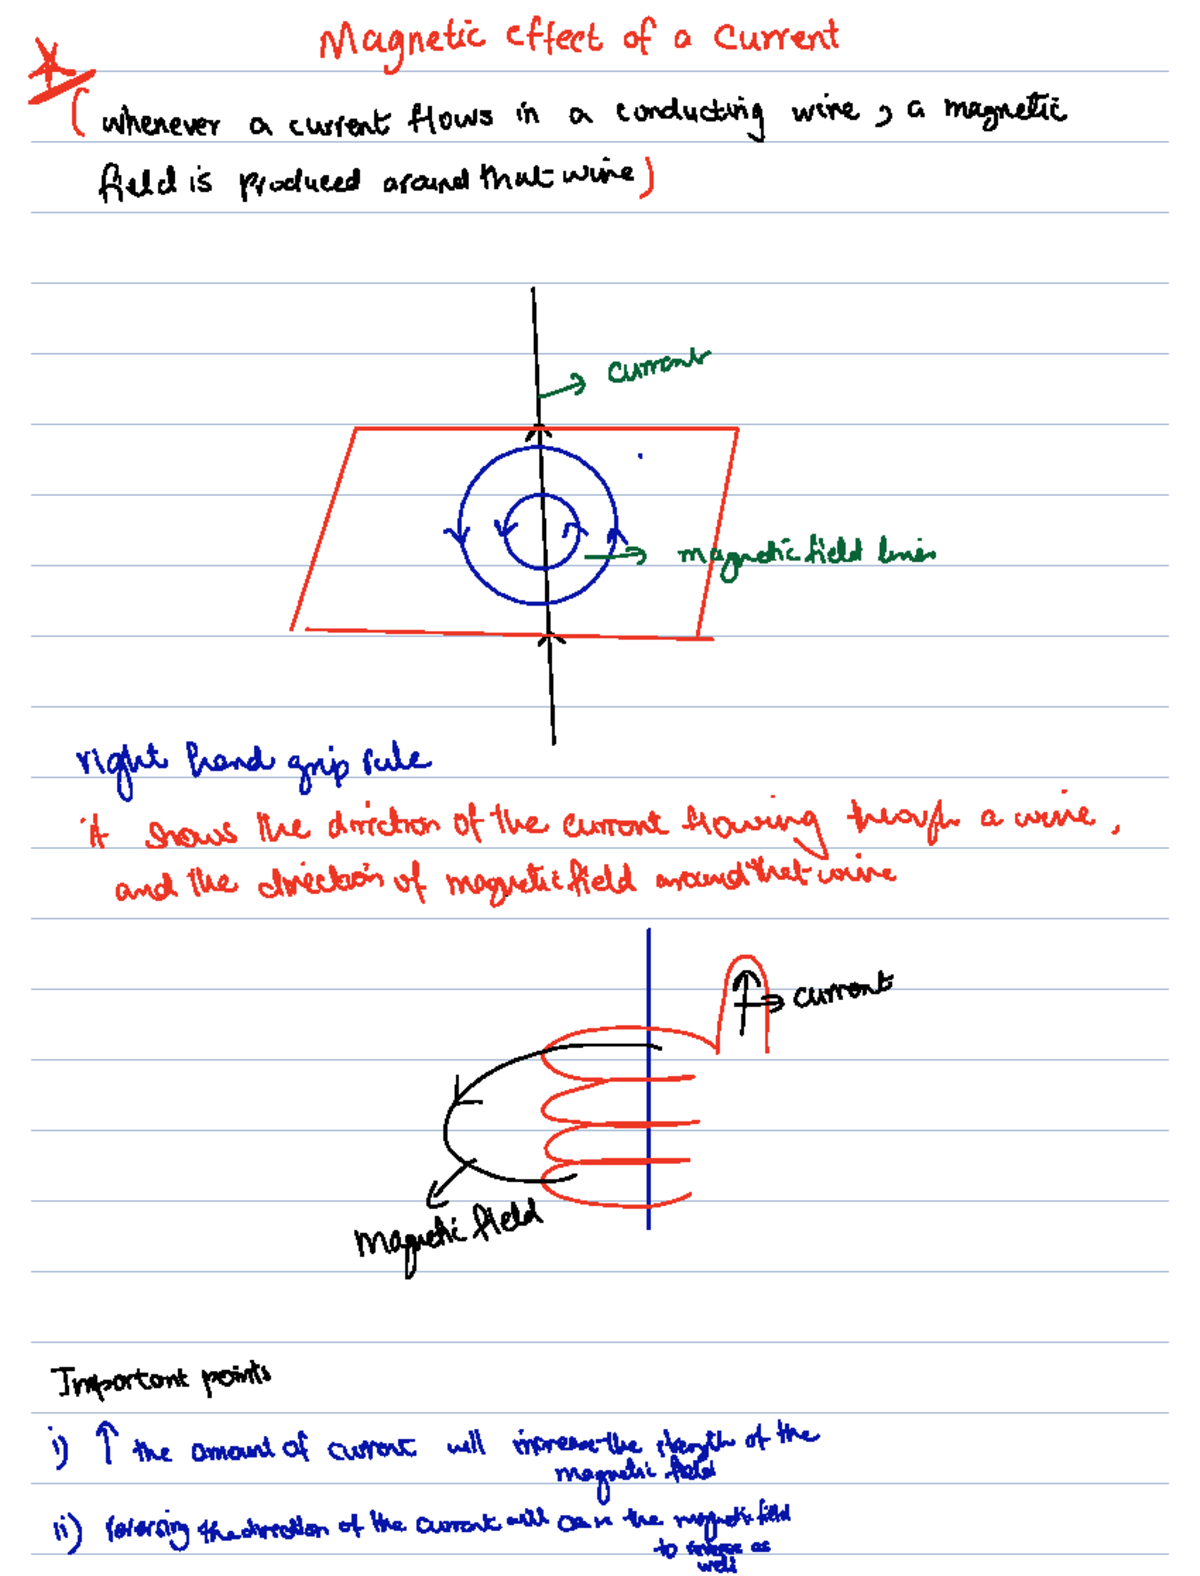 Magnetic effect of a Current
(whenever a current flows in a conducting wire, a magnetic
field is produced around that wire)
current
magnetic field lines
right hand grip rule
it shows the direction of the current flowing through a wire,
and the direction of magnetic field around that wire
current
Magnetic field
Important points
i) ↑ the amount of current will increase the strength of the
magnetic field
ii) reversing the direction of the current will the magnetic field
to reverse as
well